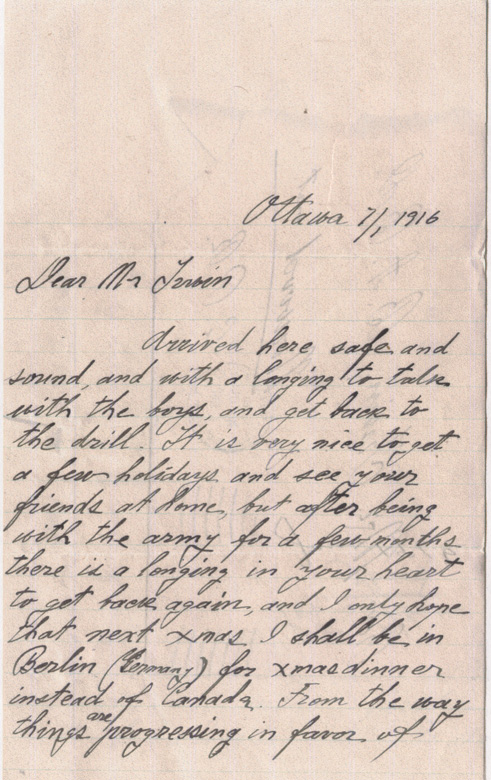 Ottawa 7/1, 1916
Dear Mr Irwin
Arrived here safe and
sound, and with a longing to talk
with the boys, and get back to
the drill. It is very nice to get
a few holidays and see your
friends at home, but after being
with the army for a few months
there is a longing in your heart
to get back again, and I only hope
that next xmas I shall be in
Berlin (Germany) for xmas dinner
instead of Canada. From the way
things are progressing in favor of